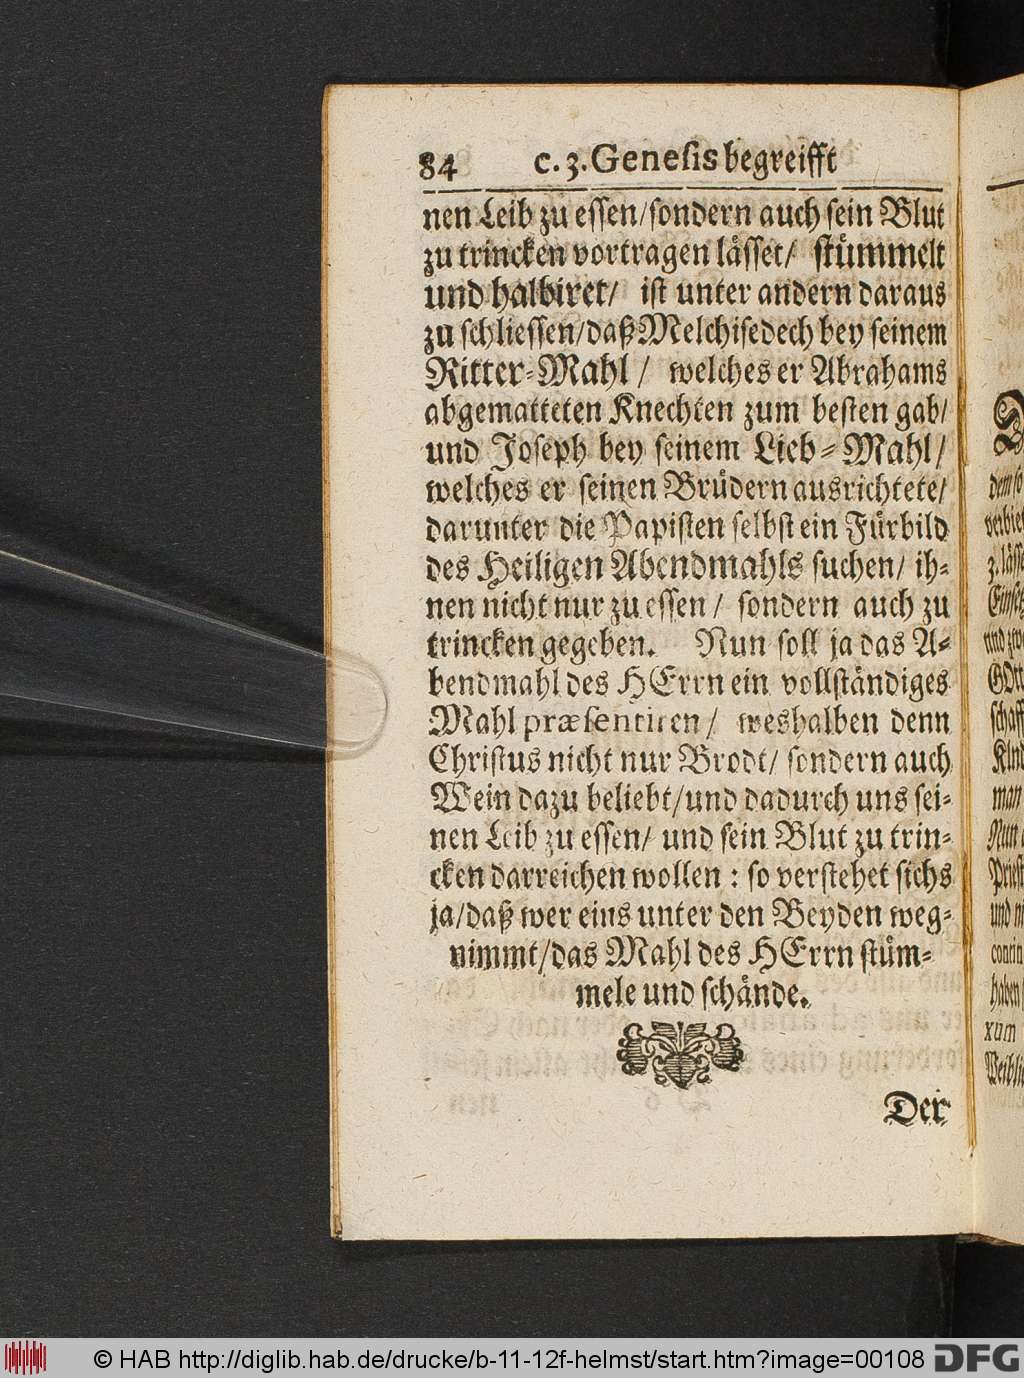 84 c. 3. Genesis begreifft
nen Leib zu essen/sondern auch sein Blut
zu trincken vortragen lässet/ stümmelt
und halbiret/ ist unter andern daraus
zu schliessen/daß Melchisedech bey seinem
Ritter-Mahl/ welches er Abrahams
abgematteten Knechten zum besten gab/
und Joseph bey seinem Lieb-Mahl/
welches er seinen Brüdern ausrichtete/
darunter die Papisten selbst ein Fürbild
des Heiligen Abendmahls suchen/ ih-
nen nicht nur zu essen/ sondern auch zu
trincken gegeben. Nun soll ja das A-
bendmahl des HErrn ein vollständiges
Mahl præsentiren/ weshalben denn
Christus nicht nur Brodt/ sondern auch
Wein dazu beliebt/und dadurch uns sei-
nen Leib zu essen/ und sein Blut zu trin-
cken darreichen wollen: so verstehet sichs
ja/daß wer eins unter den Beyden weg-
nimmt/das Mahl des HErrn stüm-
mele und schände.
Der
dem so
verbiet
z. lässe
Einset
und zw
GOtt
schaff
Kind
man
Nun
Priest
und ni
contin
haben
xum
Weiblic
© HAB http://diglib.hab.de/drucke/b-11-12f-helmst/start.htm?image=00108 DFG